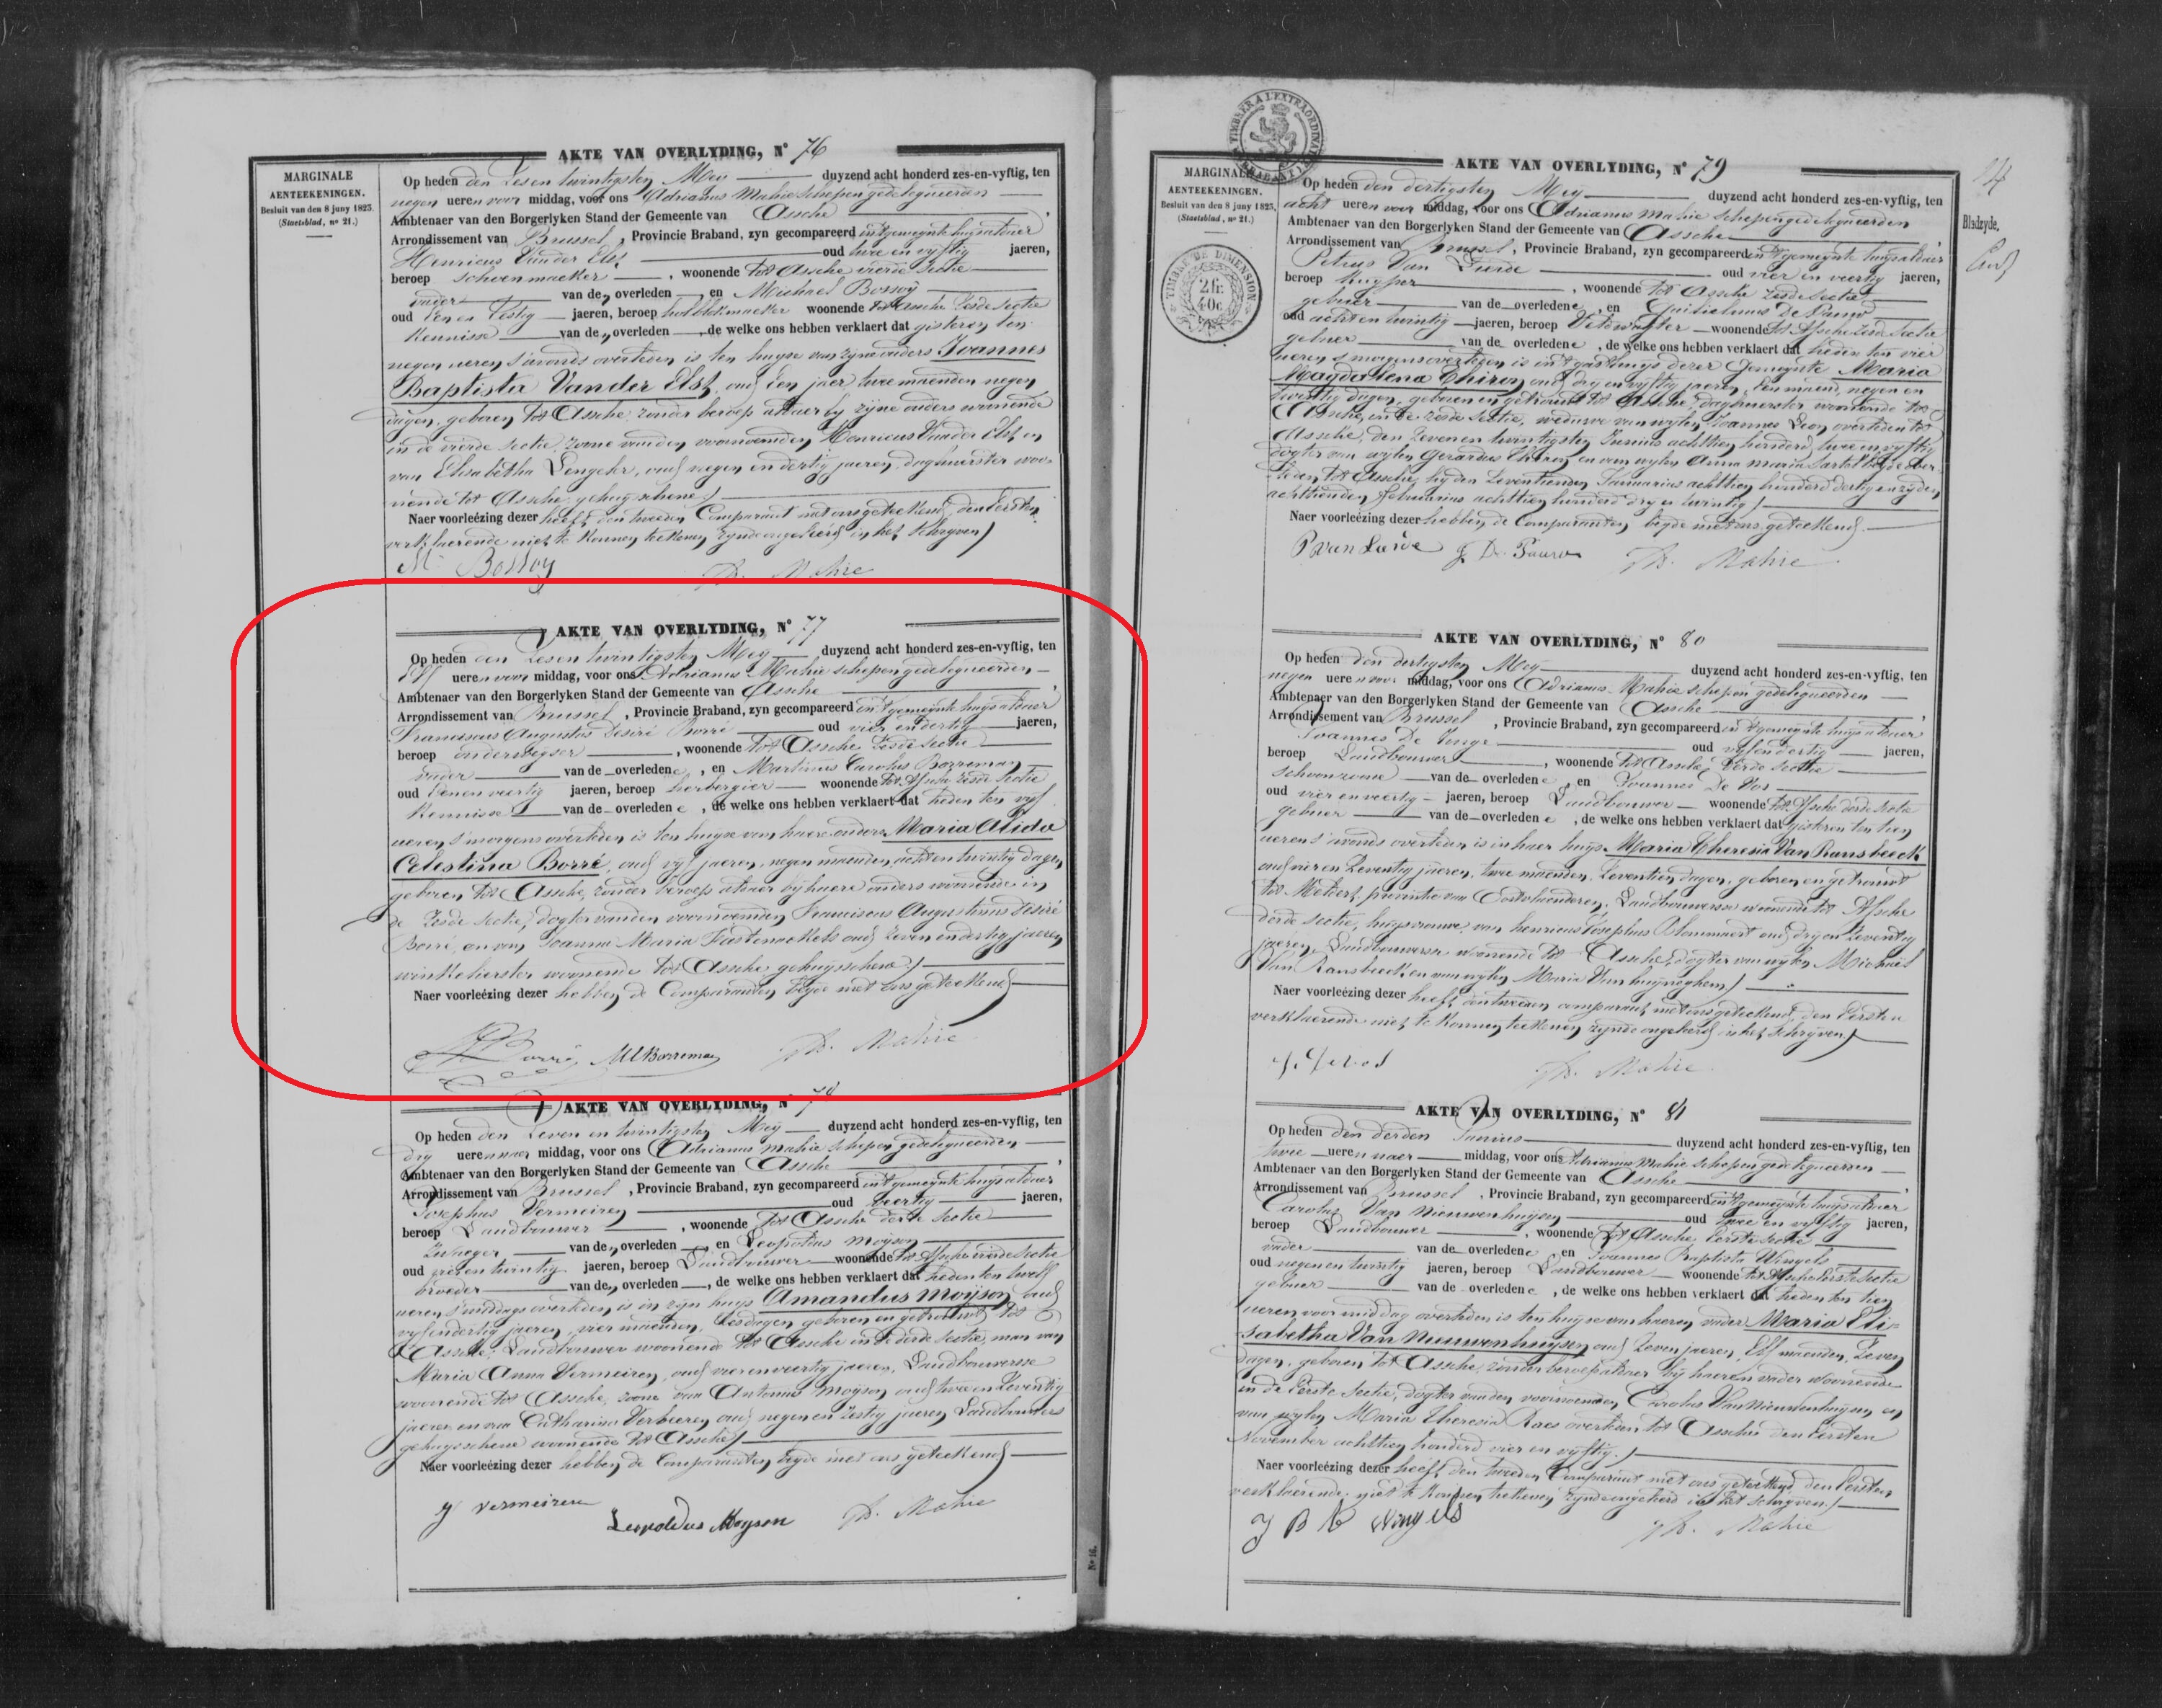 AKTE VAN OVERLYDING, N° 76
MARGINALE
AENTEEKENINGEN.
Besluit van den 8 juny 1823.
(Staetsblad, n° 21.)
Op heden den Zesen twintigsten Mey duyzend acht honderd zes-en-vyftig, ten
negen ueren voor middag, voor ons Adrianus Mahie schepen gedelegueerden
Ambtenaer van den Borgerlyken Stand der Gemeente van Assche,
Arrondissement van Brussel, Provincie Braband, zyn gecompareerd in 't gemeynte huys aldaer
Henricus Vander Elst oud twee en vyftig jaeren,
beroep schoenmaeker, woonende tot Assche vierde sectie
vader van den overleden en Michael Bossoy
oud Een en Zestig jaeren, beroep woonende tot Assche Zesde sectie
Kennisse van den overleden, de welke ons hebben verklaert dat gisteren ten
negen ueren s'avonds overleden is ten huyse van zyne ouders Joannes
Baptista Vander Elst, oud Een jaer twee maenden negen
dagen, geboren tot Assche zonder beroep aldaer by zyne ouders woonende
in de vierde sectie, zoone van den voornoemden Henricus Vander Elst en
van Elisabetha oud negen en dertig jaeren, daghuerster woo-
nende tot Assche gehuysschene)
Naer voorleézing dezer heeft den tweeden Comparant met ons geteekend, den Eersten
verklaerende niet te konnen teekenen zynde ongeleerd in het schryven)
M Bossoy Ad. Mahie
AKTE VAN OVERLYDING, N° 77
Op heden den Zesen twintigsten Mey duyzend acht honderd zes-en-vyftig, ten
Elf ueren voor middag, voor ons Adrianus Mahie schepen gedelegueerden
Ambtenaer van den Borgerlyken Stand der Gemeente van Assche,
Arrondissement van Brussel, Provincie Braband, zyn gecompareerd in 't gemeynte huys aldaer
Franciscus Augustus Desiré Borré oud vier en dertig jaeren,
beroep onderwyser, woonende tot Assche Zesde sectie
vader van de overledene, en Martinus Carolus Borreman
oud Eenen veertig jaeren, beroep herbergier woonende tot Assche Zesde sectie
Kennisse van de overledene, de welke ons hebben verklaert dat heden ten vyf
ueren s'morgens overleden is ten huyse van haere ouders Maria Alida
Celestina Borré, oud vyf jaeren, negen maenden, acht en twintig dagen
geboren tot Assche, zonder beroep aldaer by haere ouders woonende in
de Zesde sectie, dogter van den voornoemden Franciscus Augustinus Desiré
Borré, en van Joanna Maria Pastenaekels oud Zeven en dertig jaeren
winkelierster woonende tot Assche gehuysschene)
Naer voorleézing dezer hebben de Comparanten beyde met ons geteekend)
Borré M C Borreman Ad. Mahie
AKTE VAN OVERLYDING, N° 78
Op heden den Zeven en twintigsten Mey duyzend acht honderd zes-en-vyftig, ten
dry ueren naer middag, voor ons Adrianus Mahie schepen gedelegueerden
Ambtenaer van den Borgerlyken Stand der Gemeente van Assche,
Arrondissement van Brussel, Provincie Braband, zyn gecompareerd in 't gemeynte huys aldaer
Josephus Vermeiren oud veertig jaeren,
beroep Landbouwer, woonende tot Assche derde sectie
Zwaeger van den overleden en Leopoldus Moyson
oud vier en twintig jaeren, beroep Landbouwer woonende tot Assche vierde sectie
broeder van den overleden, de welke ons hebben verklaert dat heden ten twelf
ueren s'middags overleden is in zyn huys Amandus Moyson, oud
vyf en dertig jaeren, vier maenden, Zes dagen geboren en getrouwt tot
Assche, Landbouwer woonende tot Assche in de derde sectie, man van
Maria Anna Vermeiren, oud vier en veertig jaeren, Landbouwersse
woonende tot Assche, zoone van Antonius Moyson oud twee en Zeventig
jaeren en van Catharina Verbieren oud negen en Zestig jaeren Landbouwers
gehuysschene woonende tot Assche)
Naer voorleézing dezer hebben de Comparanten beyde met ons geteekend)
J Vermeiren Leopoldus Moyson Ad. Mahie
N° 16.
TIMBRE A L'EXTRAORDINAIRE
BRABANT
AKTE VAN OVERLYDING, N° 79
14
Bladzyde.
MARGINALE
AENTEEKENINGEN.
Besluit van den 8 juny 1823.
(Staetsblad, n° 21.)
TIMBRE DE DIMENSION
2fr.
40c.
Op heden den dertigsten Mey duyzend acht honderd zes-en-vyftig, ten
acht ueren voor middag, voor ons Adrianus Mahie schepen gedelegueerden
Ambtenaer van den Borgerlyken Stand der Gemeente van Assche,
Arrondissement van Brussel, Provincie Braband, zyn gecompareerd in 't gemeynte huys aldaer
Petrus Van Lierde oud vier en veertig jaeren,
beroep Kuyper, woonende tot Assche Zesde Sectie
gebuer van de overledene, en De Pauw
oud acht en twintig jaeren, beroep Veldwagter woonende tot Assche Zesde sectie
gebuer van de overledene, de welke ons hebben verklaert dat heden ten vier
ueren s'morgens overleden is in 't gasthuys dezer Gemeynte Maria
Magdalena Thiron oud dry en vyftig jaeren, Een maend, negen en
twintig dagen, geboren en getrouwt tot Assche, daghuerster woonende tot
Assche in de Zesde sectie, weduwe van wylen Joannes Leon overleden tot
Assche, den Zeven en twintigsten Junius achttien honderd twee en vyftig
dogter van wylen Gerardus Thiron en van wylen Anna Maria beyde over-
leden tot Assche, hy den Zeventienden Januarius achttien honderd dertig en zy den
achttienden Februarius achttien honderd dry en twintig)
Naer voorleézing dezer hebben de Comparanten beyde met ons geteekend)
P Van Lierde G De Pauw Ad. Mahie
AKTE VAN OVERLYDING, N° 80
Op heden den dertigsten Mey duyzend acht honderd zes-en-vyftig, ten
negen ueren voor middag, voor ons Adrianus Mahie schepen gedelegueerden
Ambtenaer van den Borgerlyken Stand der Gemeente van Assche,
Arrondissement van Brussel, Provincie Braband, zyn gecompareerd in 't gemeynte huys aldaer
Joannes De oud vyf en dertig jaeren,
beroep Landbouwer, woonende tot Assche derde sectie
schoonzoone van de overledene, en Joannes De Vos
oud vier en veertig jaeren, beroep Landbouwer woonende tot Assche derde sectie
gebuer van de overledene, de welke ons hebben verklaert dat gisteren ten tien
ueren s'avonds overleden is in haer huys Maria Theresia Van Ransbeeck
oud vier en Zeventig jaeren, twee maenden, Zeventien dagen, geboren en getrouwt
tot Meldert, provintie van Oostvlaenderen, Landbouwersse woonende tot Assche
derde sectie, huysvrouwe van henricus Josephus Blommaert oud dry en Zeventig
jaeren, Landbouwer woonende tot Assche, dogter van wylen Michael
Van Ransbeeck en van wylen Maria Van huyneghem)
Naer voorleézing dezer heeft den tweeden comparant met ons geteekend, den Eersten
verklaerende niet te konnen teekenen zynde ongeleerd in het schryven)
Ad. Mahie
AKTE VAN OVERLYDING, N° 81
Op heden den derden Junius duyzend acht honderd zes-en-vyftig, ten
twee ueren naer middag, voor ons Adrianus Mahie schepen gedelegueerden
Ambtenaer van den Borgerlyken Stand der Gemeente van Assche,
Arrondissement van Brussel, Provincie Braband, zyn gecompareerd in 't gemeynte huys aldaer
Carolus Van Nieuwenhuysen oud twee en vyftig jaeren,
beroep Landbouwer, woonende tot Assche Eerste sectie
vader van de overledene en Joannes Baptista Wingels
oud negen en twintig jaeren, beroep Landbouwer woonende tot Assche Eerste sectie
gebuer van de overledene, de welke ons hebben verklaert dat heden ten tien
ueren voor middag overleden is ten huyse van haeren vader Maria Eli-
sabetha Van Nieuwenhuysen oud Zeven jaeren, Elf maenden, Zeven
dagen, geboren tot Assche, zonder beroep aldaer by haeren vader woonende
in de Eerste sectie, dogter van den voornoemden Carolus Van Nieuwenhuysen en
van wylen Maria Theresia Raes overleden tot Assche den Eersten
November achttien honderd vier en vyftig.)
Naer voorleézing dezer heeft den tweeden Comparant met ons geteekend, den Eersten
verklaerende niet te konnen teekenen zynde ongeleerd in het schryven.)
J B Wingels Ad. Mahie